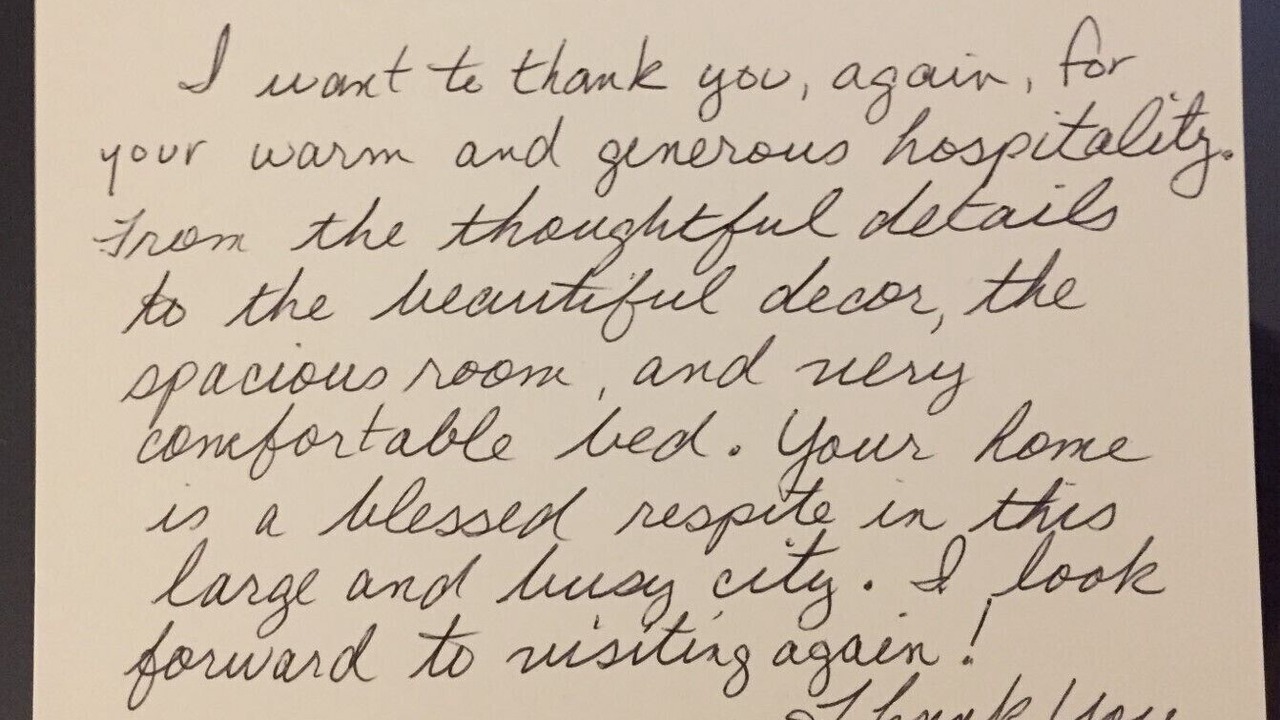 I want to thank you, again, for
your warm and generous hospitality.
From the thoughtful details
to the beautiful decor, the
spacious room, and very
comfortable bed. Your home
is a blessed respite in this
large and busy city. I look
forward to visiting again!
Thank You